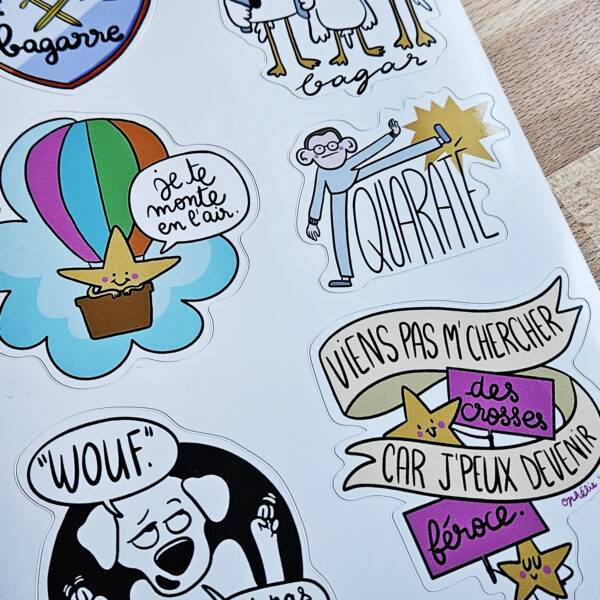 bagarre
bagar
je te
monte
en l'air.
QUARATE
VIENS PAS M'CHERCHER
des
crosses
CAR J'PEUX DEVENIR
féroce.
ophélie
"WOUF."
pas